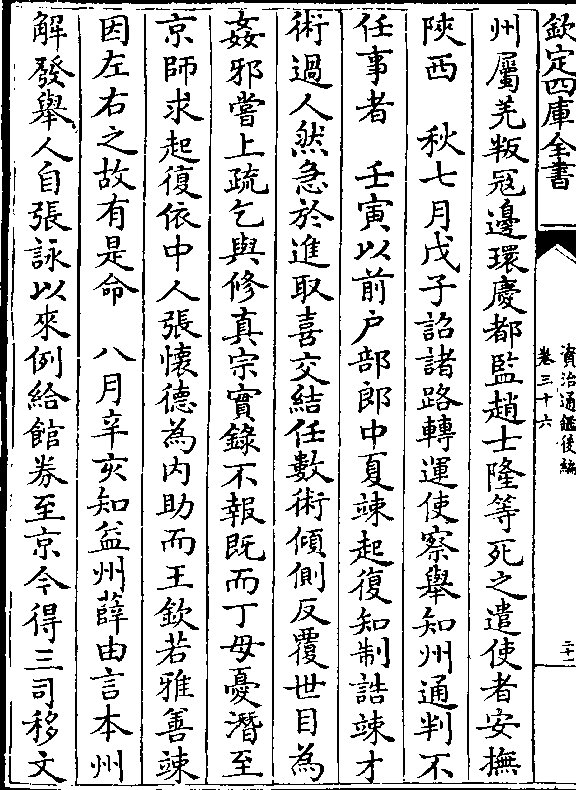 欽定四庫全書
資治通鑑後編
卷三十六
三十二
州屬羌叛冦邊環慶都監趙士隆等死之遣使者安撫
陜西　秋七月戊子詔諸路轉運使察舉知州通判不
任事者　壬寅以前户部郎中夏竦起復知制誥竦才
術過人然急於進取喜交結任數術傾側反覆世目為
姦邪嘗上疏乞與修真宗實錄不報既而丁母憂潛至
京師求起復依中人張懷德為内助而王欽若雅善竦
因左右之故有是命　八月辛亥知益州薛由言本州
解發舉人自張詠以來例給館券至京今得三司移文